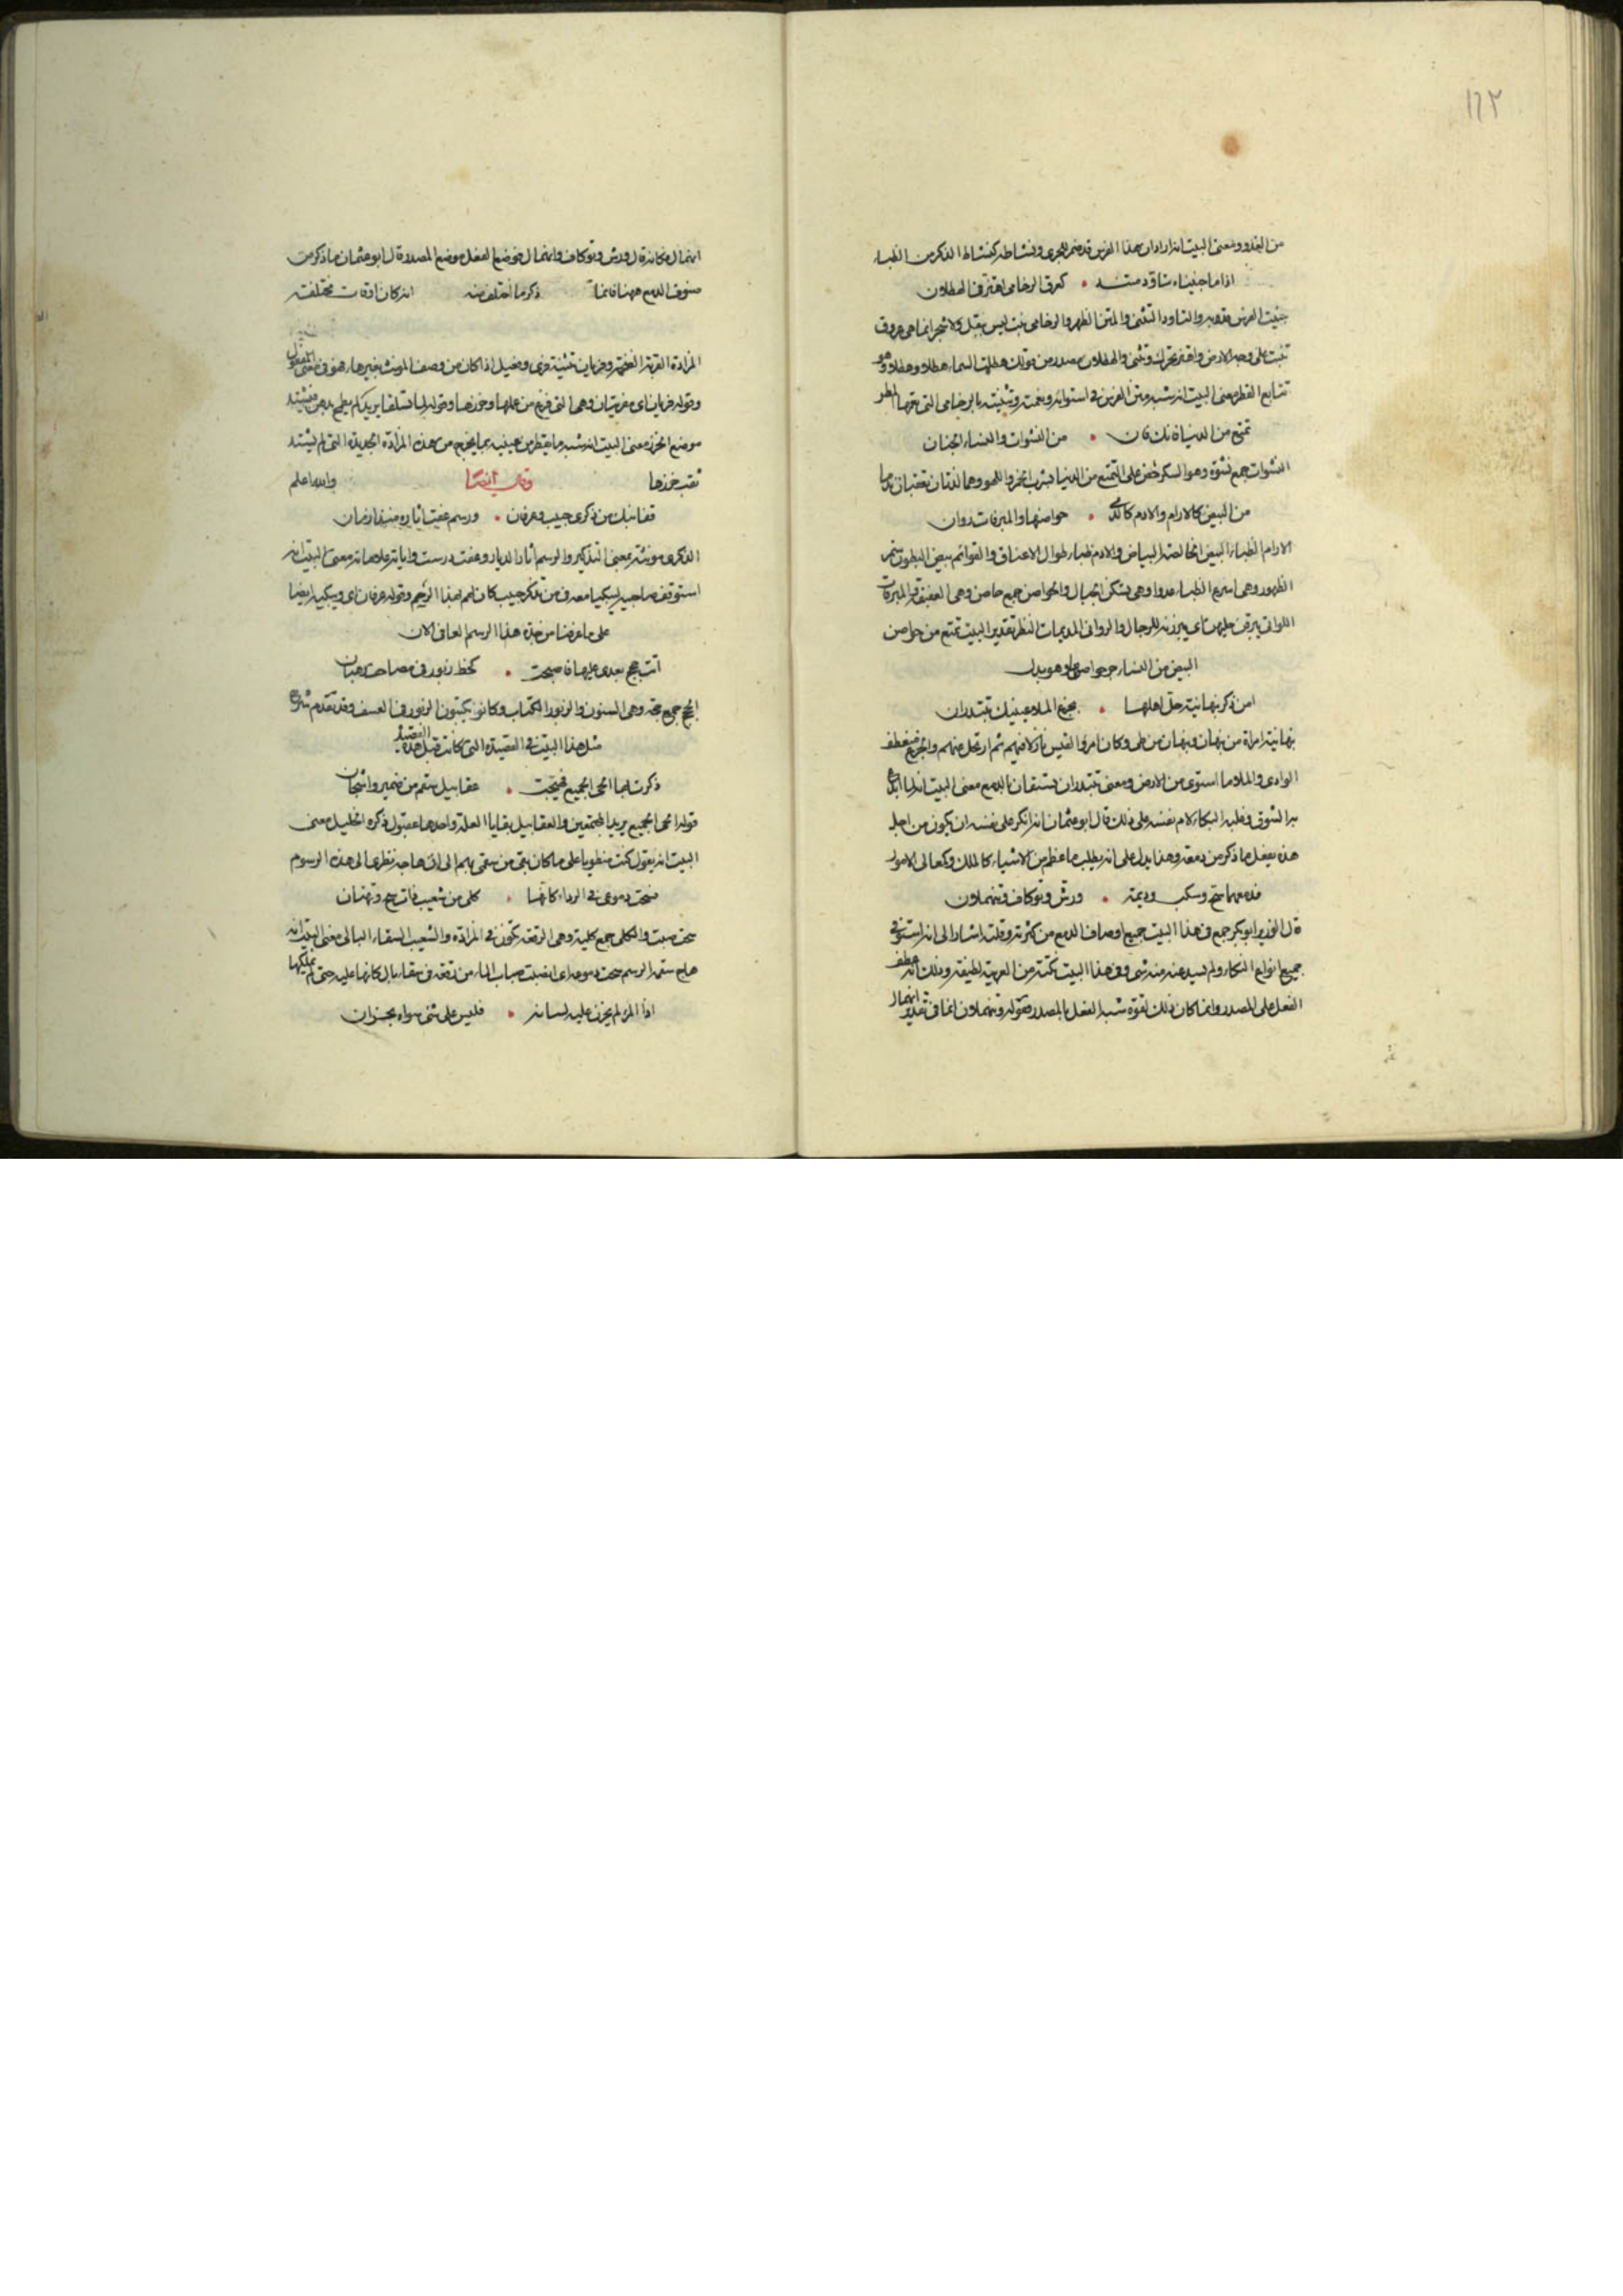 ١٦٢
من الغدو ومعنى البيت انه اراد ان هذا الفرس قد ضمر للجرى ونشاطه كنشاط الذكر من الظباء
اذا ما جنبناه تاود متنه • كعرق الرخامى اهتز فى الهطلان
جنبت الفرس قدته والتاود التثنى والمتن الظهر والرخامى نبت ليس ببقل ولا شجر انما هى عروق
تنبت على وجه الارض واهتز تحرك وتثنى والهطلان مصدر من قولك هطلت السماء هطلا وهطلانا وهو
تتابع القطر معنى البيت انه شبه متن الفرس فى استوائه ونعمته وتثنيه بالرخامى التى المطر
تمتع من الدنيا فانك فان • من النشوات والنساء الحسان
النشوات جمع نشوة وهو السكر حض على التمتع من الدنيا بشرب الخمر واللهو وهما لذتان
من البيض كالارام والادم كالدمى • حواصنها والمبرقات روان
الارام الظباء البيض الخالصة البياض والادم ظباء طوال الاعناق والقوائم بيض البطون سمر
الظهور وهى اسرع الظباء عدوا وهى تسكن الجبال والحواصن جمع حاصن وهى العفيفة والمبرقات
اللواتى يبرقن حليهن اى يبرزنه للرجال والروانى المديمات النظر تقدير البيت تمتع من حواصن
البيض من النساء جر حواصن وهو بدل
امن ذكر نبهانية حل اهلها • بجزع الملا عيناك تبتدران
نبهانية امراة من نبهان ونبهان من طى وكان امرؤ القيس نازلا فيهم ثم ارتحل عنهم والجزع منعطف
الوادى والملا ما استوى من الارض ومعنى تبتدران تستبقان بالدمع معنى البيت انه لما
به الشوق وغلبه البكاء لام نفسه على ذلك قال ابو عثمان انه انكر على نفسه ان يكون من اجل
هذه يفعل ما ذكر من دمعه وهذا يدل على انه يطلب ما عظم من الاشياء كالملك وكمعالى الامور
فدمعهما سح وسكب وديمة • ورش وتوكاف وتنهملان
قال الوزير ابو بكر جمع فى هذا البيت جميع اوصاف الدمع من كثرته وقلته اشارا الى انه استوفى
جميع انواع البكاء ولم يبد عنه منه شى وفى هذا البيت نكتة من العربية لطيفة وذلك انه عطف
الفعل على المصدر وانما كان ذلك لقوة شبه الفعل بالمصدر فقوله وتنهملان انما فى تقدير انهمال
انهمال فكانه قال ورش وتوكاف وانهمال فوضع الفعل موضع المصدر قال ابو عثمان ما ذكر من
صنوف الدمع ههنا فانما ذكر ما اختلف منه انه كان اوقات مختلفة
المزادة القربة الضخمة وفريان تثنية فرى وفعيل اذا كان من وصف المونث بغير هاء فهو فى معنى المفعول
وقوله فريان اى مفريتان وهى التى فرغ من عملها وخرزها وقوله لما تسلقا يريد لم
موضع الخرز معنى البيت انه شبه ما يقطر من عينيه بما يخرج من هذه المزادة الجديدة التى لم يشتد
ثقب خرزها وقال ايضا والله اعلم
قفا نبك من ذكرى حبيب وعرفان • ورسم عفت اياته منذ ازمان
الذكرى مونثة بمعنى التذكير والرسم اثار الديار وعفت درست واياته علاماته معنى البيت انه
استوقف صاحبيه ليبكيا معه فى من تذكر حبيب كان لهم بهذا الرسم وقوله عرفان اى ويبكيه ايضا
على ما عرفنا من جدة هذا الرسم العافى الان
اتت حجج بعدى عليها فاصبحت • كخط زبور فى مصاحف رهبان
الحجج جمع حجة وهى السنون والزبور الكتاب وكانو يكتبون الزبور فى العسف وقد تقدم شرح
مثل هذا البيت فى القصيدة التى كانت قبل هذه القصيدة
ذكرت بها الحى الجميع فهيجت • عقابيل سقم من ضمير واشجان
قوله الحى الجميع يريد المجتمعين والعقابيل بقايا العلة واحدها عقبول ذكره الخليل معنى
البيت انه يقول كنت منطويا على ما كان بقى من سقمى بهم الى ان هاجه نظرى الى هذه الرسوم
فسحت دموعى فى الرداء كانها • كلى من شعيب ذات سح وتهتان
سحت صبت والكلى جمع كلية وهى الرقعة تكون فى المزادة والشعيب السقاء البالى معنى البيت انه
هاج سقمه الرسم سحت دموعه اى انصبت صباب الماء من رقعة فى سقاء بال كانها عليه حتى لم يملكها
اذا المرء لم يخزن عليه لسانه • فليس على شى سواه بخزان